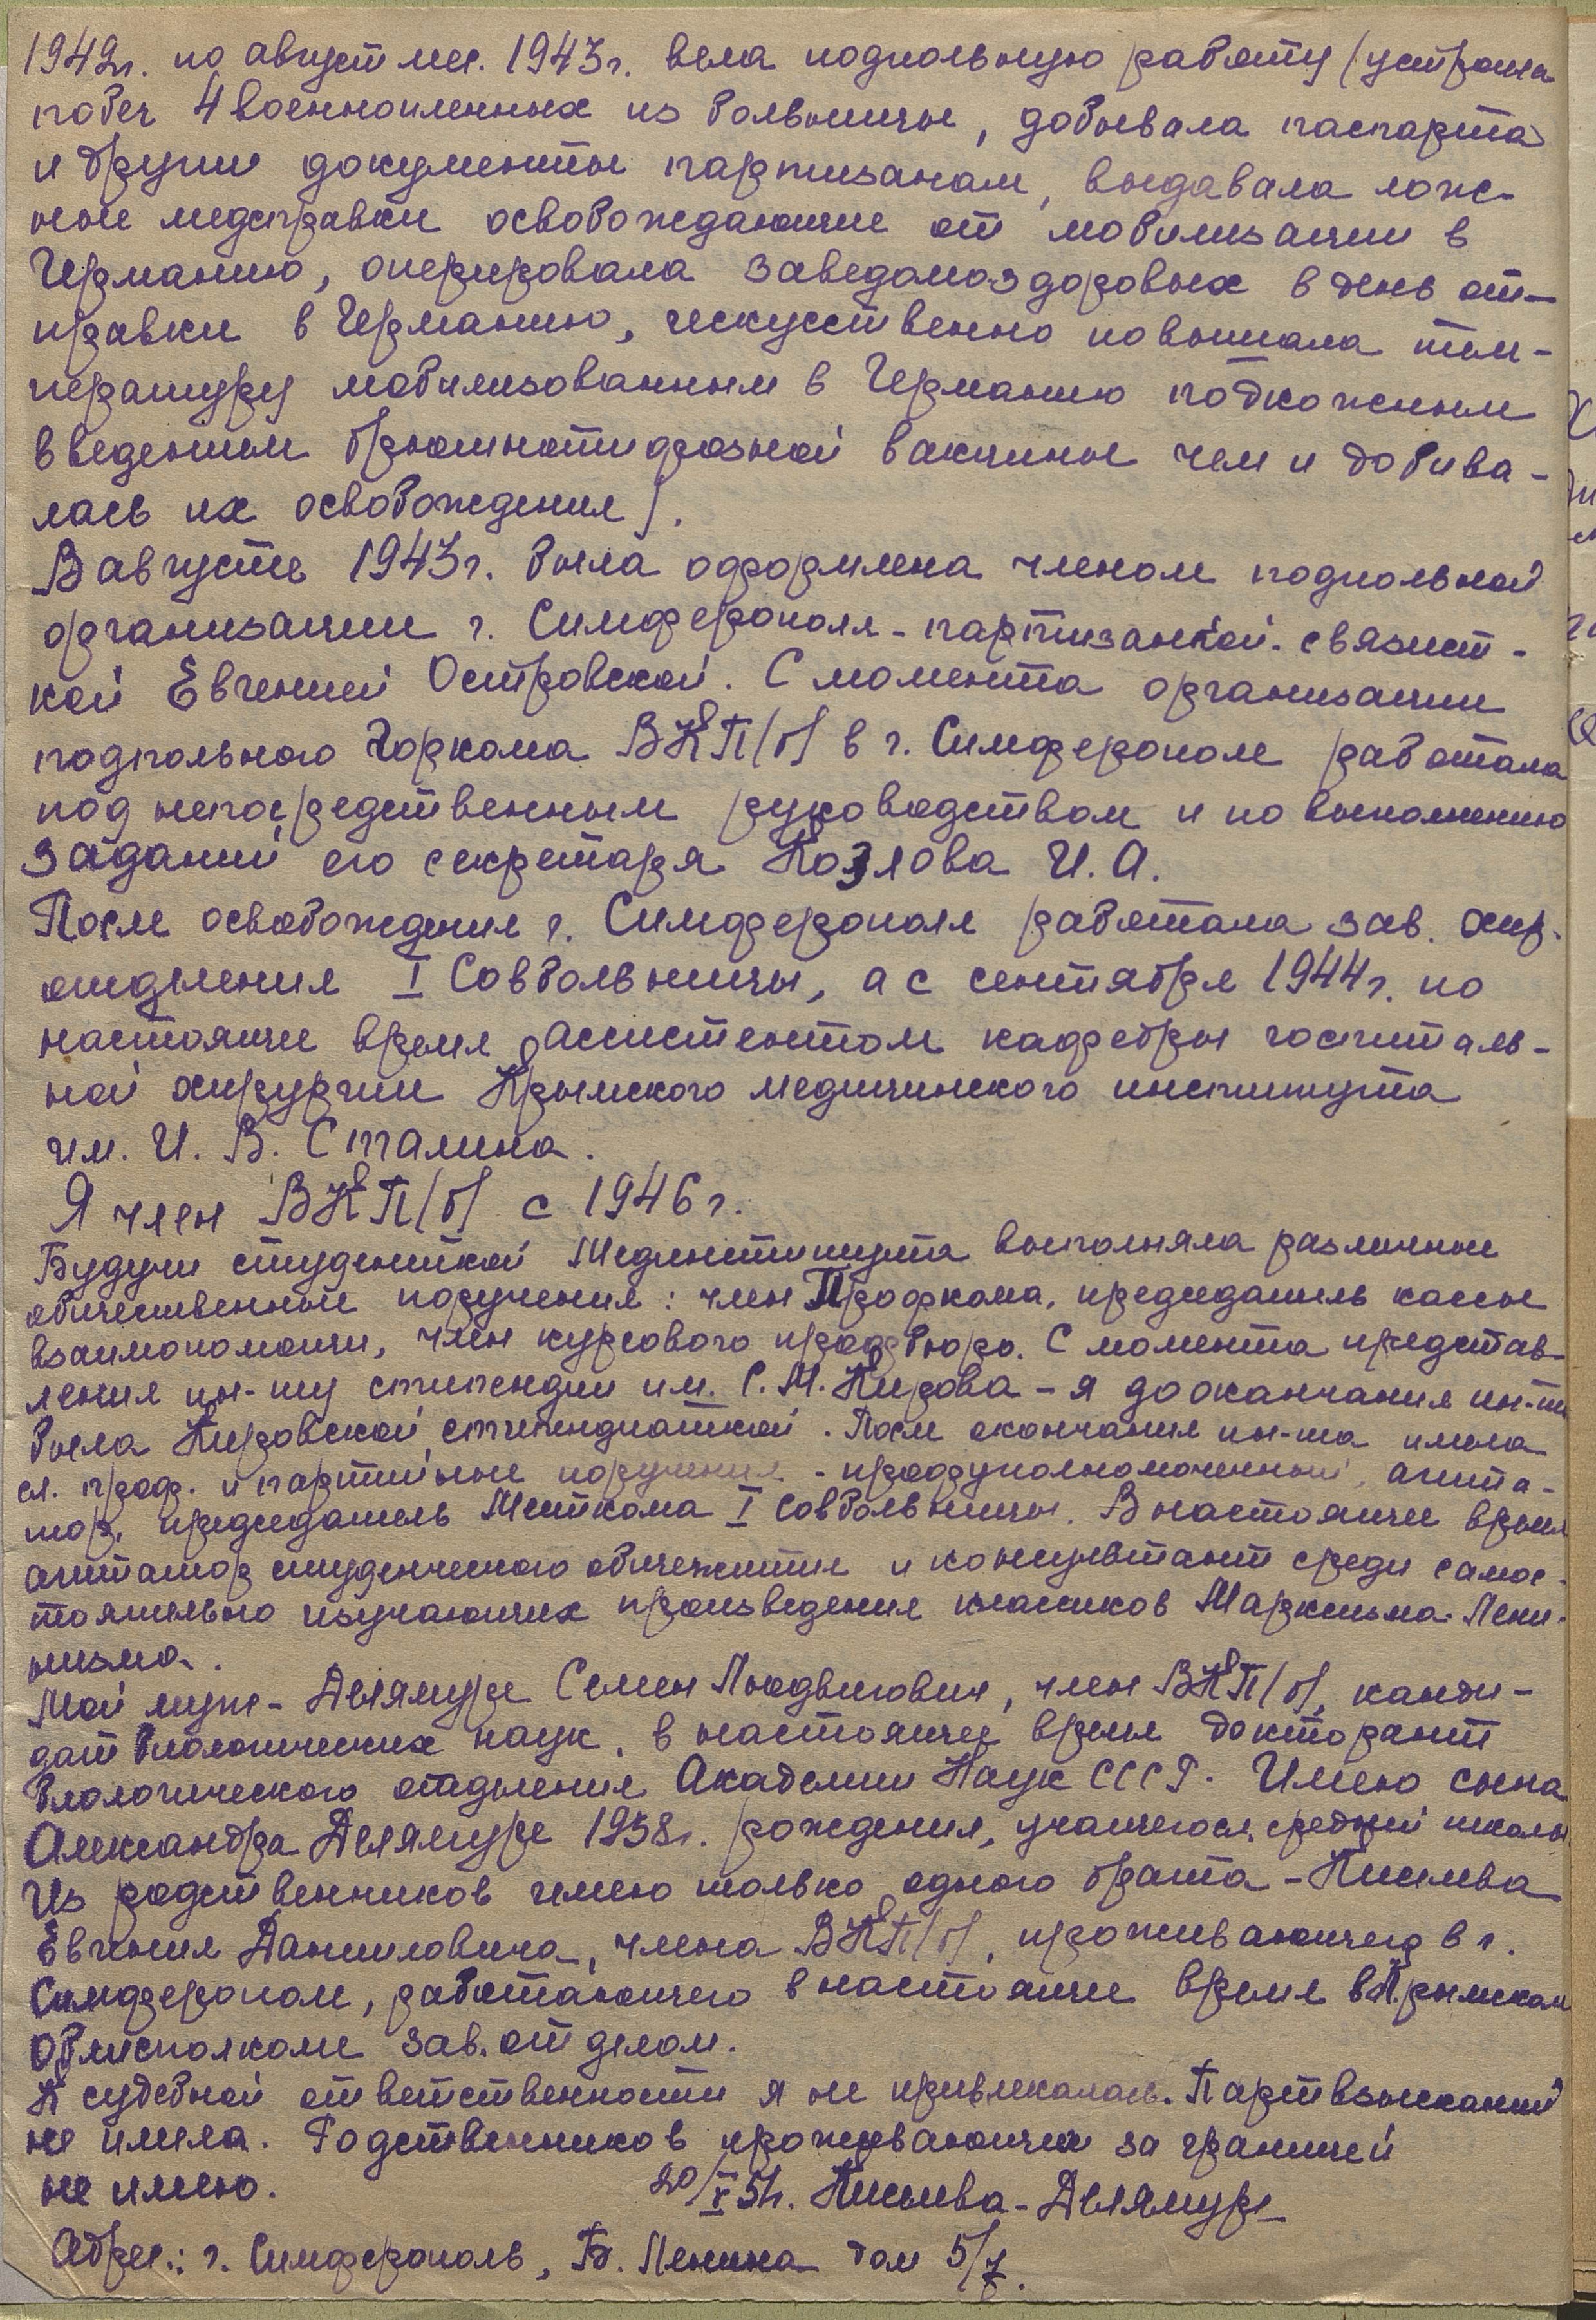 1942г. по август мес. 1943г. вела подпольную работу (устроила
побег 4 военнопленных из больницы, добывала паспорта
и другие документы партизанам, выдавала лож-
ные медсправки освобождающие от мобилизации в
Германию, оперировала заведомоздоровых в день от-
правки в Германию, искусственно повышала тем-
пературу мобилизованным в Германию подкожным
введением брюшнотифозной вакцины чем и добива-
лась их освобождения).
В августе 1943г. была оформлена членом подпольной
организации г. Симферополя - партизанкой - связист-
кой Евгенией Островской. С момента организации
подпольного Горкома ВКП/б/ в г. Симферополе работала
под непосредственным руководством и по выполнению
заданий его секретаря Козлова И. А.
После освобождения г. Симферополя работала зав. хир.
отделения I Совбольницы, а с сентября 1944г. по
настоящее время ассистентом кафедры госпиталь-
ной хирургии Крымского медицинского института
им. И. В. Сталина.
Я член ВКП/б/ с 1946г.
Будучи студенткой Мединститута выполняла различные
общественные поручения: член Профкома, председатель кассы
взаимопомощи, член курсового профбюро. С момента представ-
ления ин-ту стипендии им. С. М. Кирова - я до окончания ин-та
была Кировской стипендиаткой. После окончания ин-та имела
сл. проф. и партийные поручения - профуполномоченный, агита-
тор, председатель Месткома I Совбольницы. В настоящее время
агитатор студенческого общежития и консультант среди самос-
тоятельно изучающих произведения классиков Марксизма-Лени-
низма.
Мой муж - Делямуре Семен Людвигович, член ВКП/б/, канди-
дат биологических наук, в настоящее время докторант
биологического отделения Академии Наук СССР. Имею сына
Александра Делямуре 1938г. рождения, учащегося средней школы
Из родственников имею только одного брата -
Евгения Даниловича, члена ВКП/б/, проживающего в г.
Симферополе, работающего в настоящее время в Крымском
Облисполкоме зав. отделом.
К судебной ответственности я не привлекалась. Партвзысканий
не имела. Родственников проживающих за границей
не имею.
20/V 51г. Делямуре
Адрес: г. Симферополь, Б. Ленина дом 5/7.